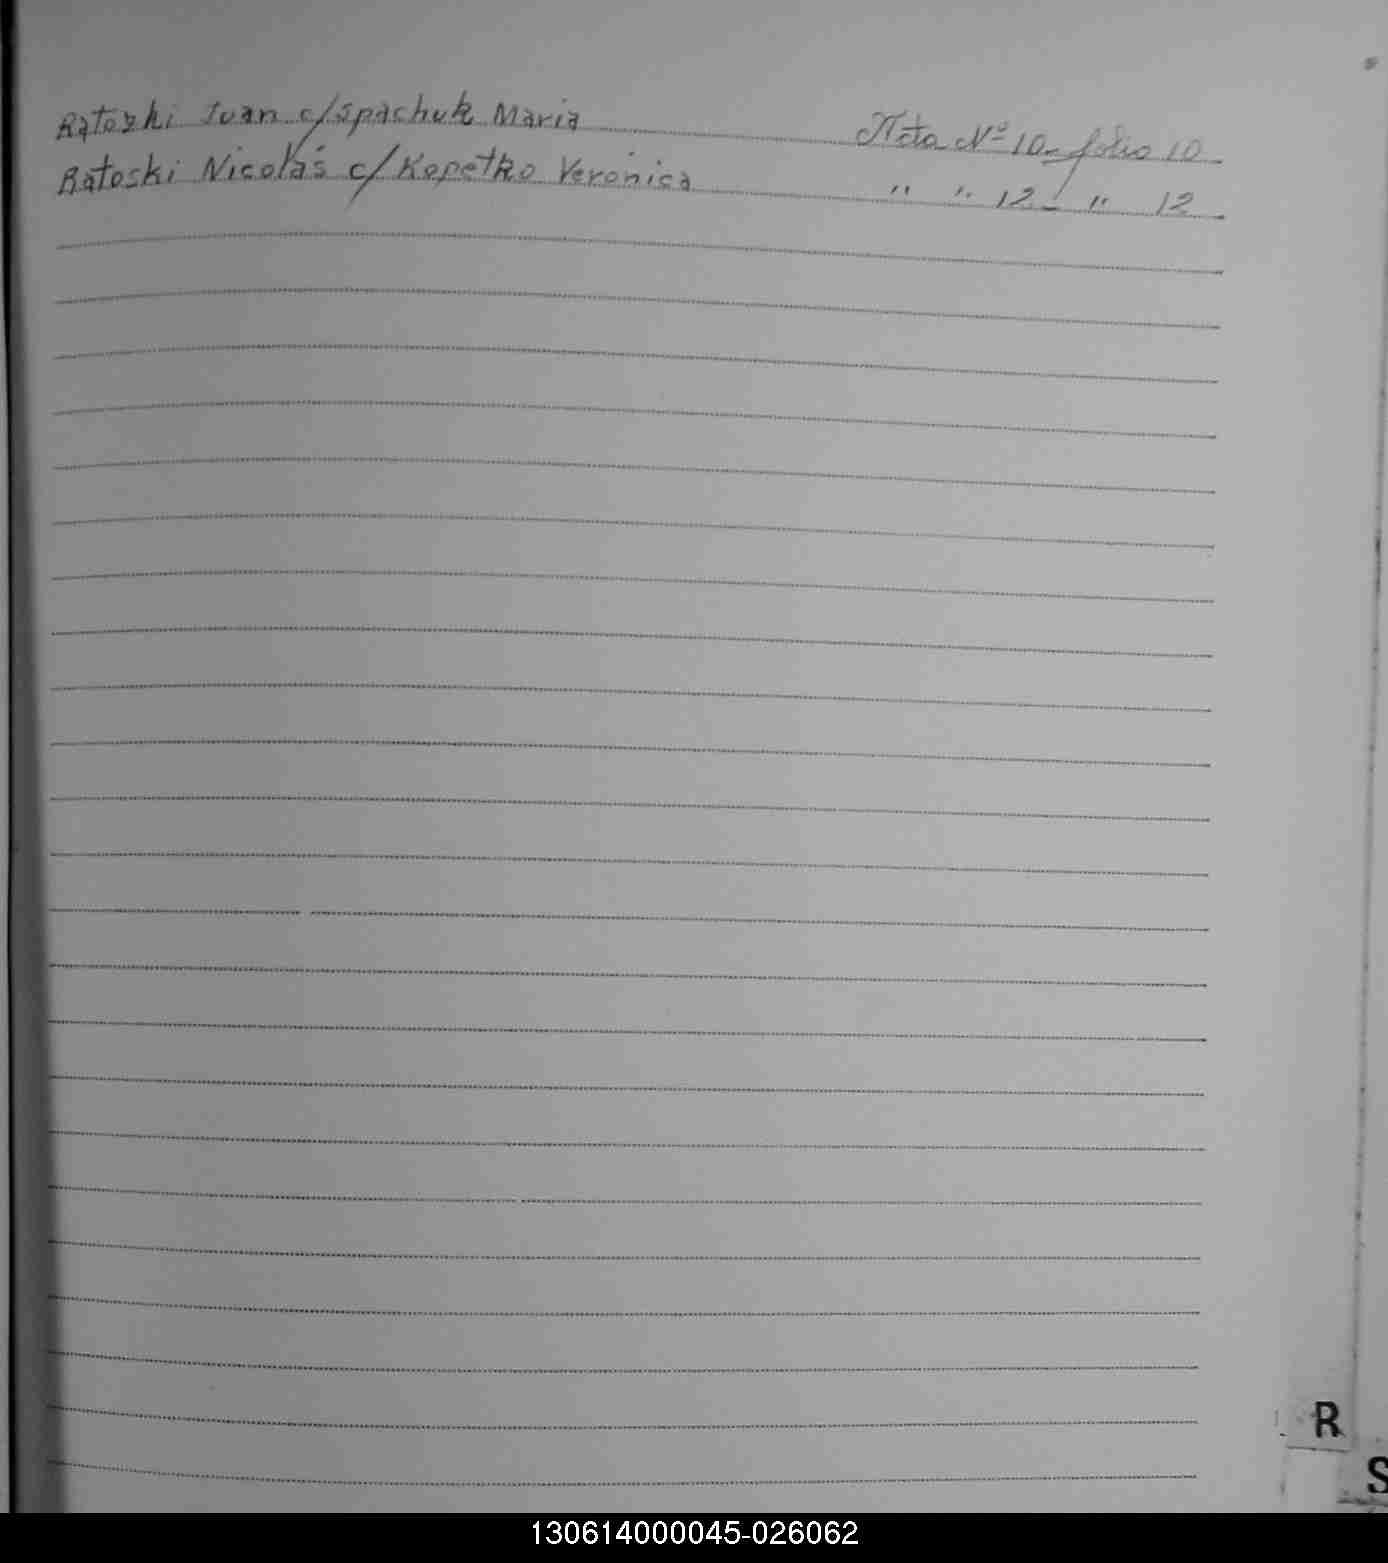 Ratoski Juan c/Spachuk Maria Acta Nº 10 - folio 10
Ratoski Nicolás c/ Kopetko Verónica " " 12 - " 12
R
S
130614000045-026062